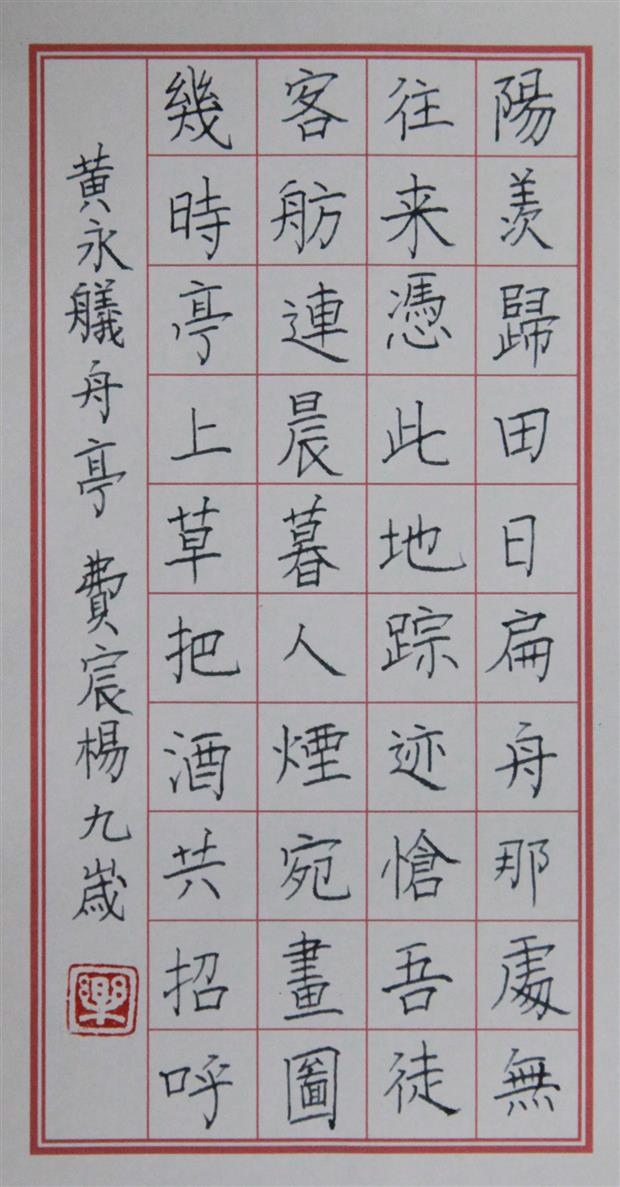 陽羨歸田日扁舟那處無
往来憑此地踪迹愴吾徒
客舫連晨暮人煙宛畫圖
幾時亭上草把酒共招呼
黄永艤舟亭 費宸楊九歲